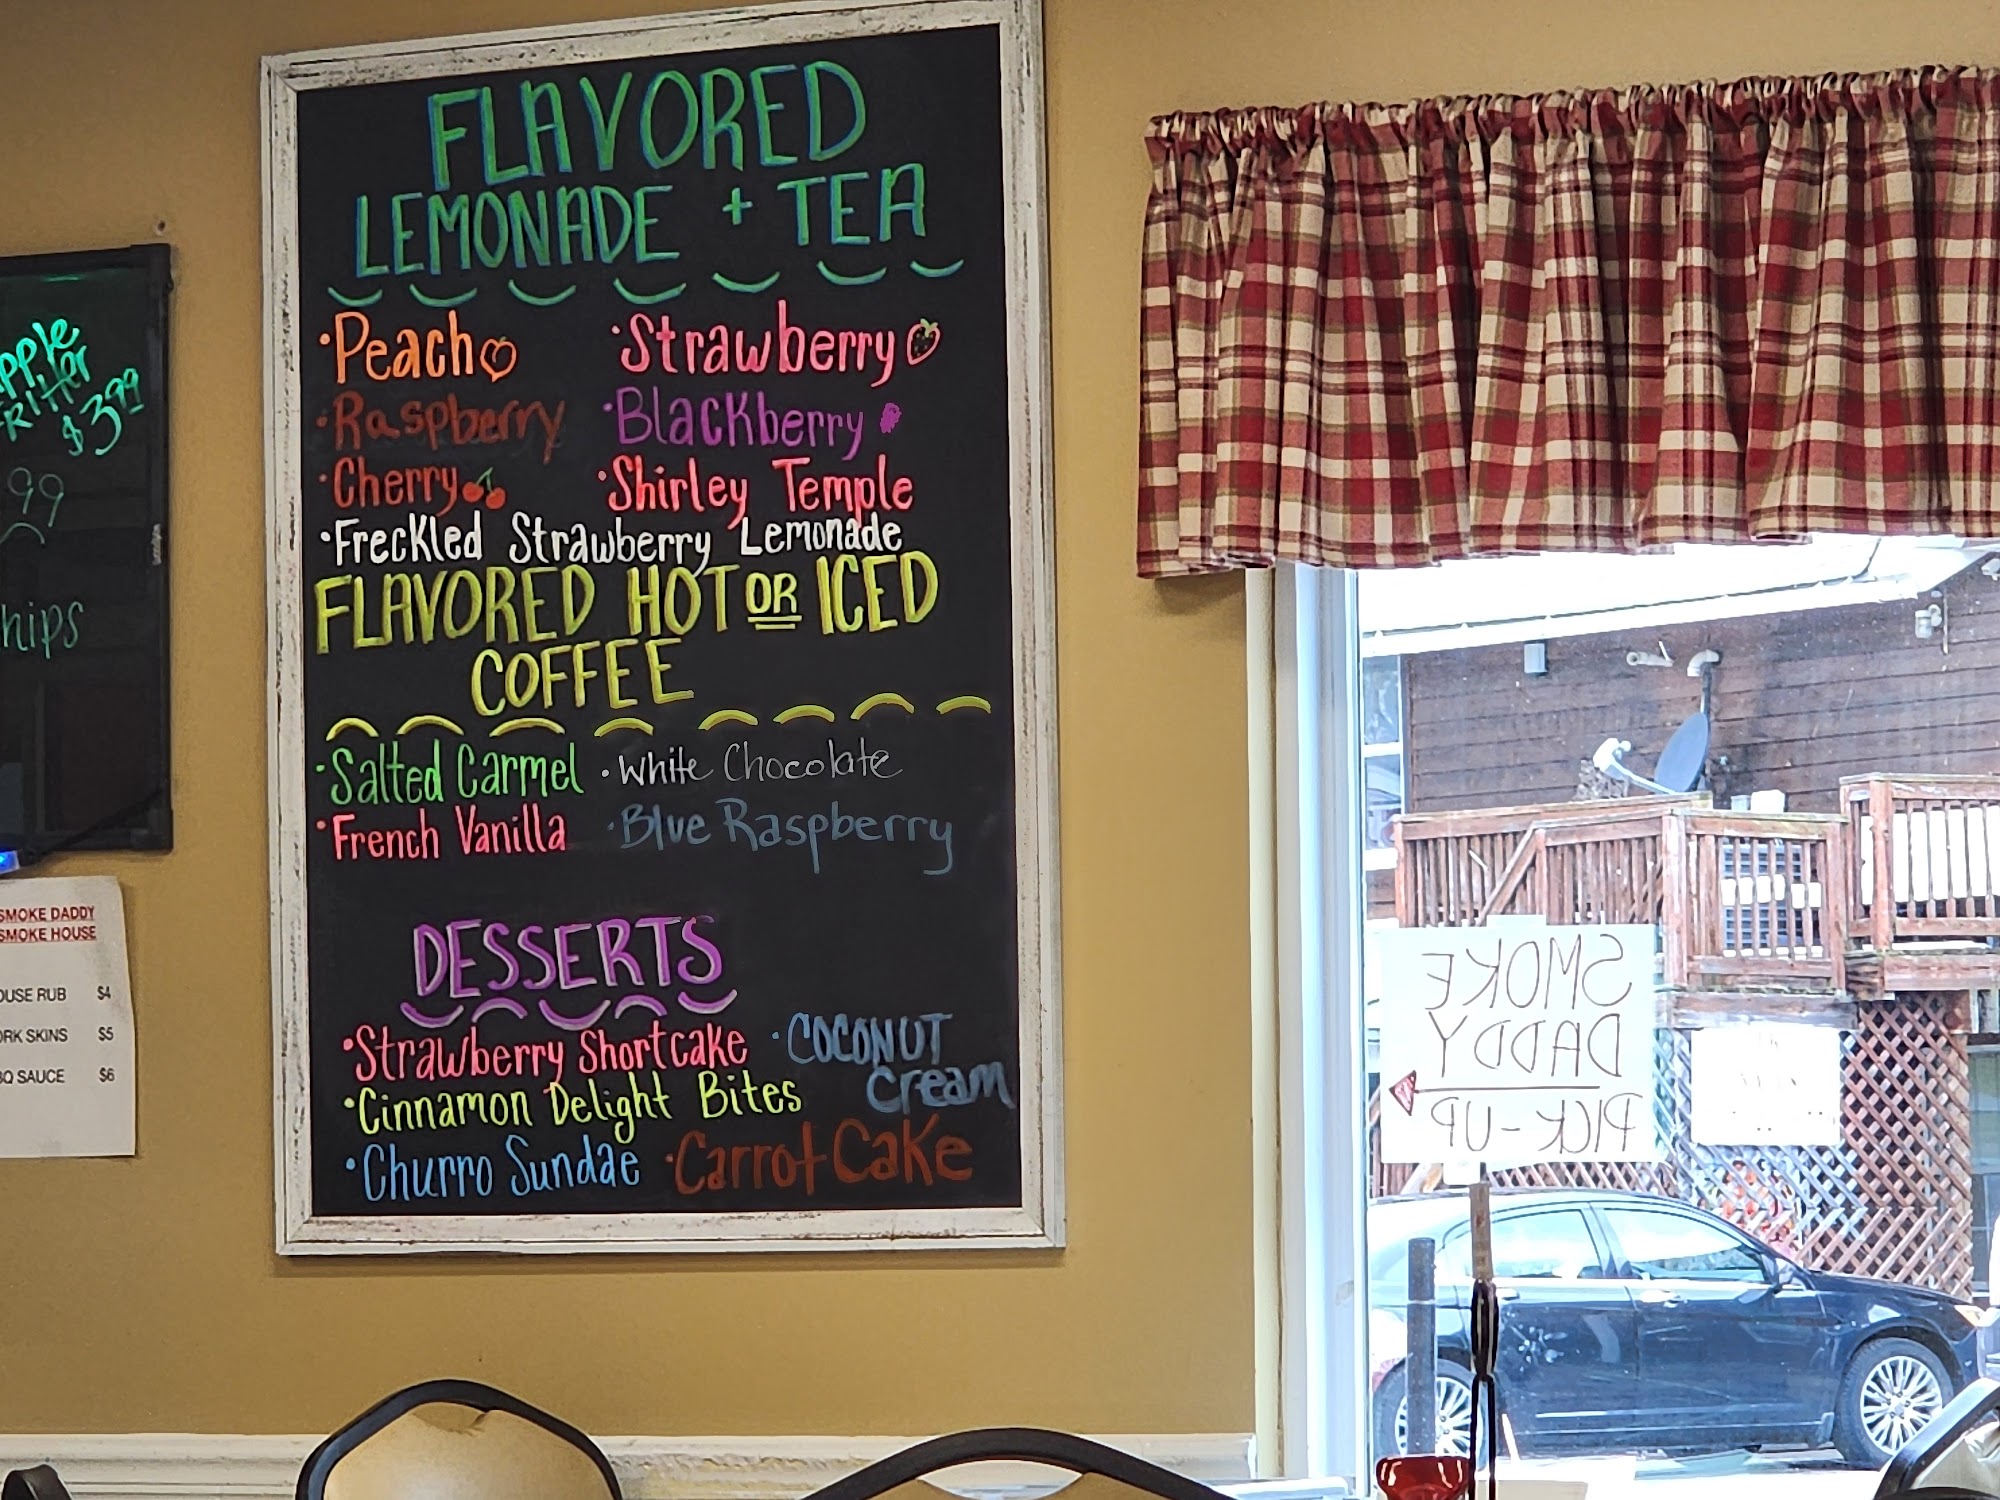 FLAVORED
LEMONADE + TEA
•Peach •Strawberry
•Raspberry •Blackberry
•Cherry •Shirley Temple
•Freckled Strawberry Lemonade
FLAVORED HOT OR ICED
COFFEE
•Salted Carmel •White Chocolate
•French Vanilla •Blue Raspberry
DESSERTS
•Strawberry Shortcake •COCONUT
Cream
•Cinnamon Delight Bites
•Churro Sundae •Carrot Cake
$3.99
99
SMOKE DADDY
SMOKE HOUSE
RUB $4
SKINS $5
SAUCE $6
SMOKE
DADDY
PICK-UP